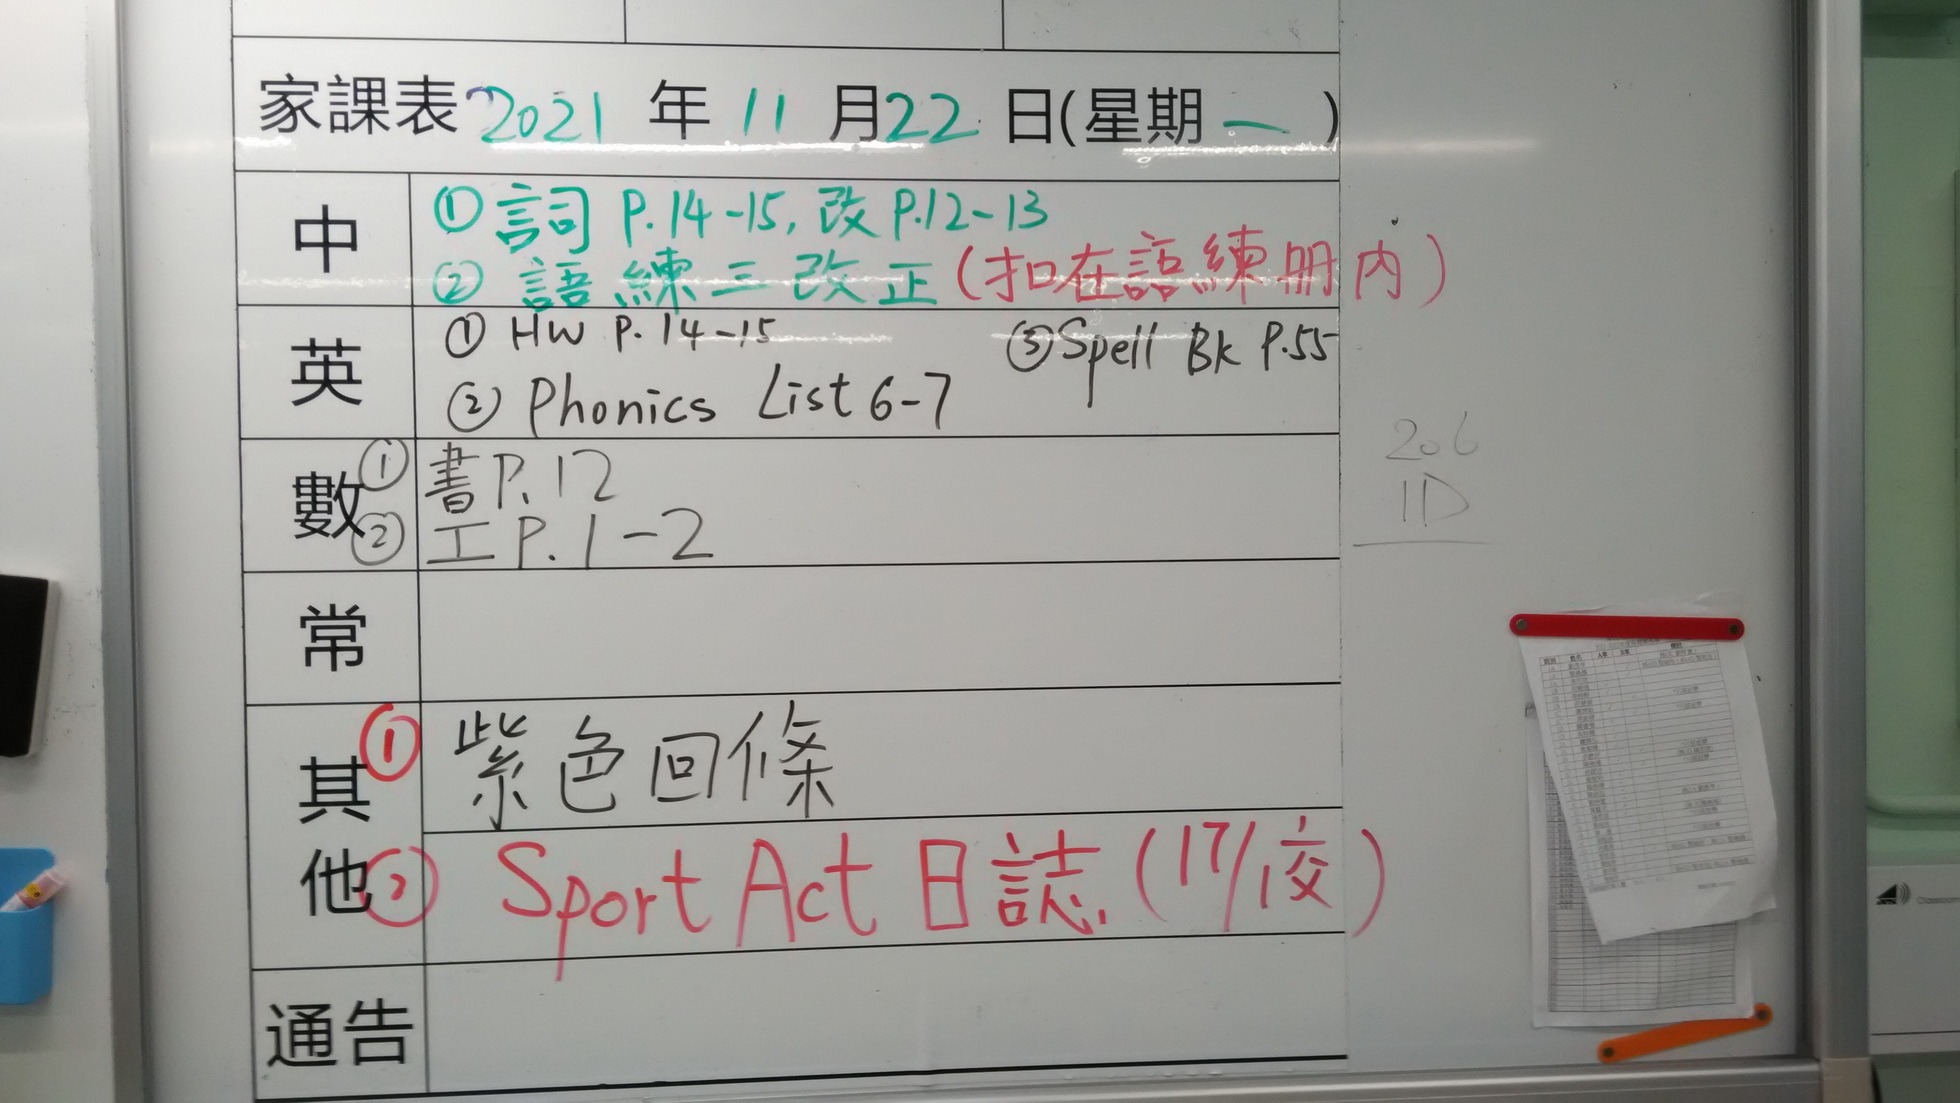 家課表 2021 年 11 月 22 日(星期一)
中
① 詞 P.14-15, 改 P.12-13
② 語練三改正 (扣在語練冊內)
英
① HW P. 14-15 ③ Spell Bk P.55
② Phonics List 6-7
數
① 書 P. 12
② 工 P. 1-2
206
1D
常
其他
① 紫色回條
② Sport Act 日誌 (17/1交)
通告